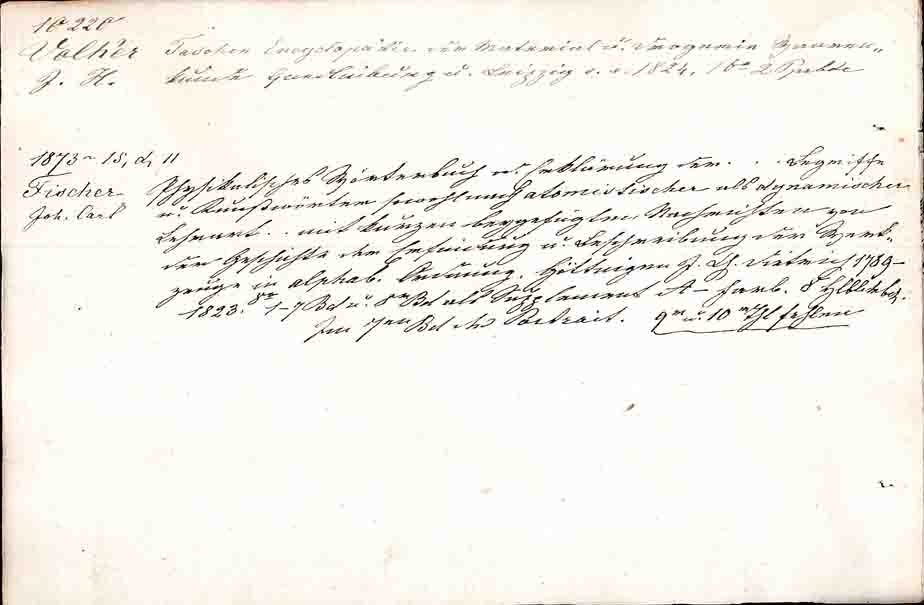 10 220
Volker Taschen Encyclopädie der Material u. Droguerie Waaren„
J. H. kunde Quedlinburg u. Leipzig 1824. 2 Ppbde
1873 – 15, d, 11
Fischer Physikalisches Wörterbuch od. Erklärung der . . . Begriffe
Joh. Carl u. Kunstwörter sowohl nach atomistischer als dynamischer
Lehrart . . mit kurzen beygefügten Nachrichten von
der Geschichte der Erfindung u. Beschreibung der Werk-
zeuge in alphab. Ordnung. Göttingen J. C. Dietrich 1789–
1823. 8° 1–7 Bd u. 8r Bd als Supplement A – Farb. 8 Hlbldrbde.
Im 7ten Bd das Portrait. 9r u. 10r Thl fehlen